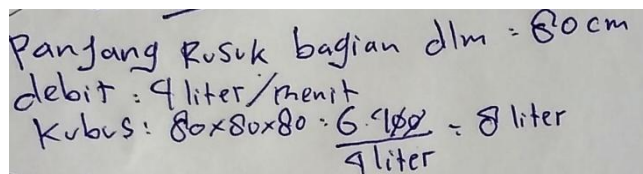 Panjang Rusuk bagian dlm = 80 cm
debit : 4 liter/menit
Kubus : 80x80x80 : 6.400 = 8 liter
4 liter